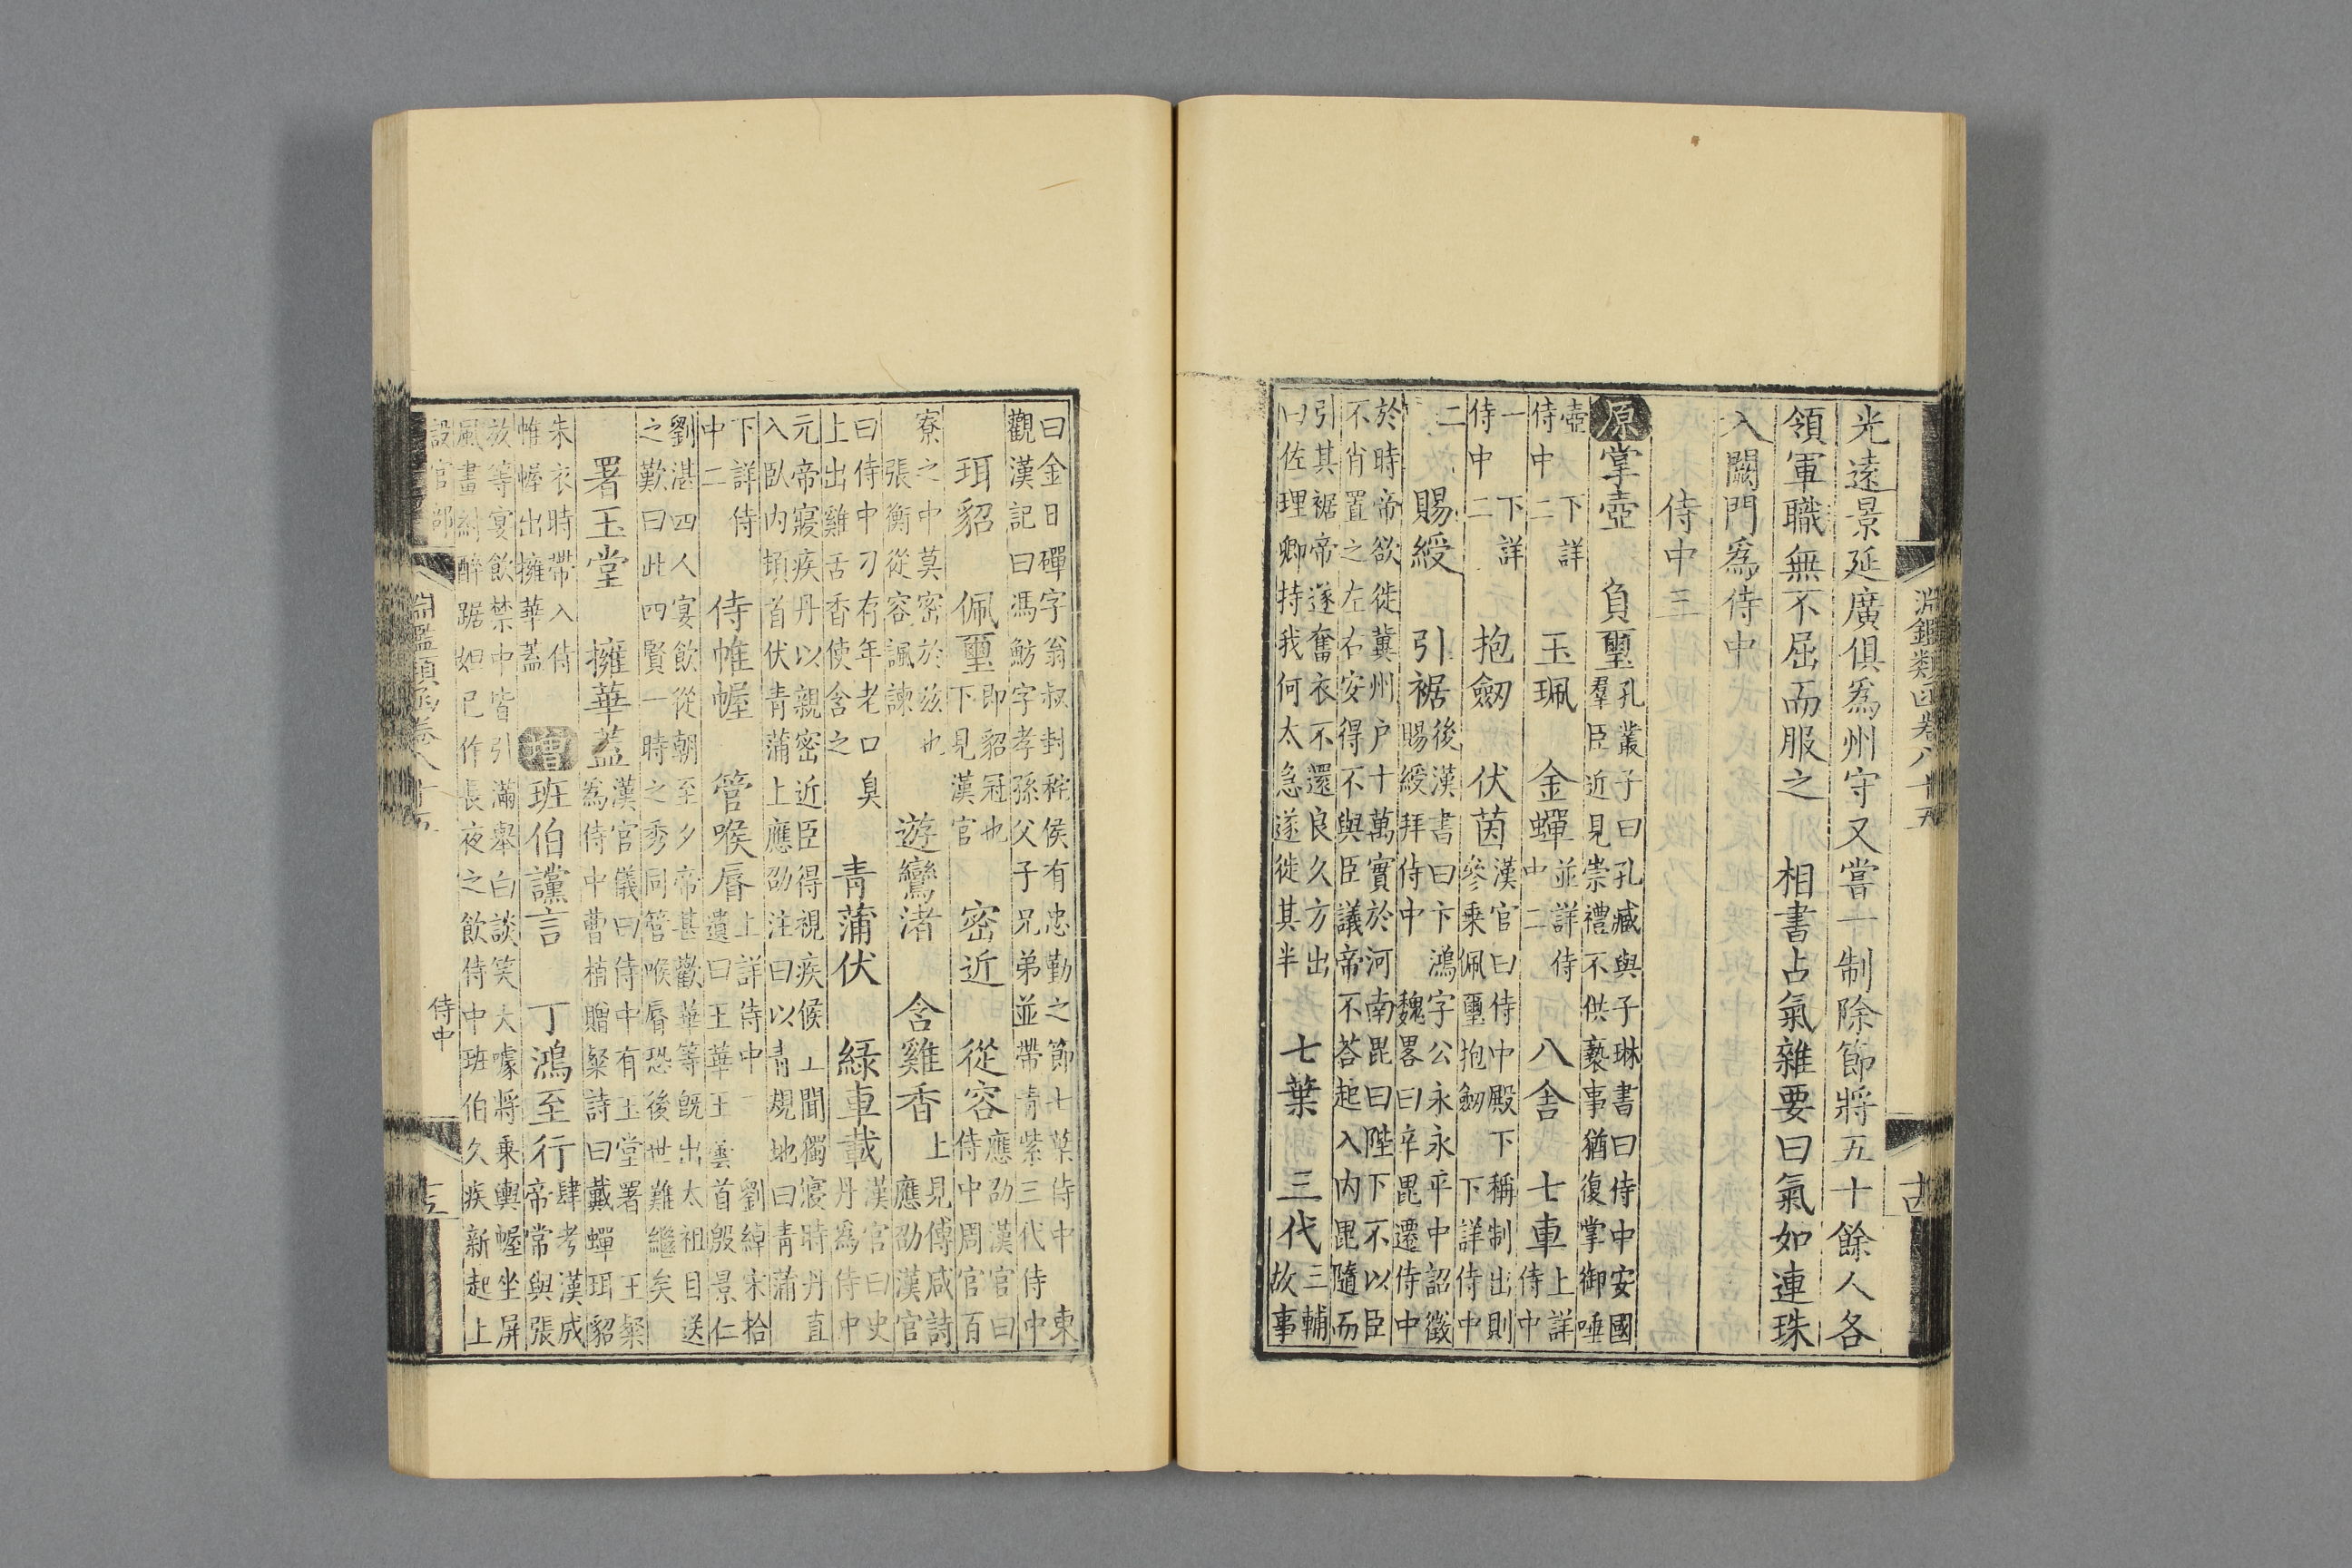 淵鑑類函卷八十五 十四
光遠景延廣俱爲州守又嘗一制除節將五十餘人各
領軍職無不屈而服之 相書占氣雜要曰氣如連珠
入闕門爲侍中
侍中三
原掌壺 負璽
孔叢子曰孔臧與子琳書曰侍中安國
羣臣近見崇禮不供褻事猶復掌御唾
壺 下詳
侍中二
玉珮 金蟬
並詳侍
中二
八舍 七車
上詳
侍中
一 下詳
侍中二
抱劒 伏茵
漢官曰侍中殿下稱制出則
參乘佩璽抱劒 下詳侍中
二
賜綬 引裾
後漢書曰卞鴻字公永永平中詔徵
賜綬拜侍中 魏畧曰辛毘遷侍中
於時帝欲徙冀州户十萬實於河南毘曰陛下不以臣
不肖置之左右安得不與臣議帝不荅起入内毘隨而
引其裾帝遂奮衣不還良久方出
曰佐理卿持我何太急遂徙其半
七葉 三代
三輔
故事
曰金日磾字翁叔封秺侯有忠勤之節七葉侍中 東
觀漢記曰馮魴字孝孫父子兄弟並帶青紫三代侍中
珥貂 佩璽
即貂冠也
下見漢官
密近 從容
應劭漢官曰
侍中周官百
寮之中莫密於兹也
張衡從容諷諫
遊鸞渚 含雞香
上見傅咸詩
應劭漢官
曰侍中刁有年老口臭
上出雞舌香使含之
青蒲伏 緑車載
漢官曰史
丹爲侍中
元帝寢疾丹以親密近臣得視疾候上聞獨寢時丹直
入臥内頓首伏青蒲上應劭注曰以青規地曰青蒲
下詳侍
中二
侍帷幄 管喉脣
上詳侍中一 劉綽宋拾
遺曰王華王曇首殷景仁
劉湛四人宴飲從朝至夕帝甚歡華等旣出太祖目送
之歎曰此四賢一時之秀同管喉脣恐後世難繼矣
署玉堂 擁華蓋
漢官儀曰侍中有玉堂署 王粲
爲侍中曹植贈粲詩曰戴蟬珥貂
朱衣時帶入侍
帷幄出擁華蓋
增班伯讜言 丁鴻至行
肆考漢成
帝常與張
放等宴飲禁中皆引滿舉白談笑大噱將乘輿幄坐屏
風畫紂醉踞妲己作長夜之飲侍中班伯久疾新起上
設官部 淵鑑類函卷八十五 侍中